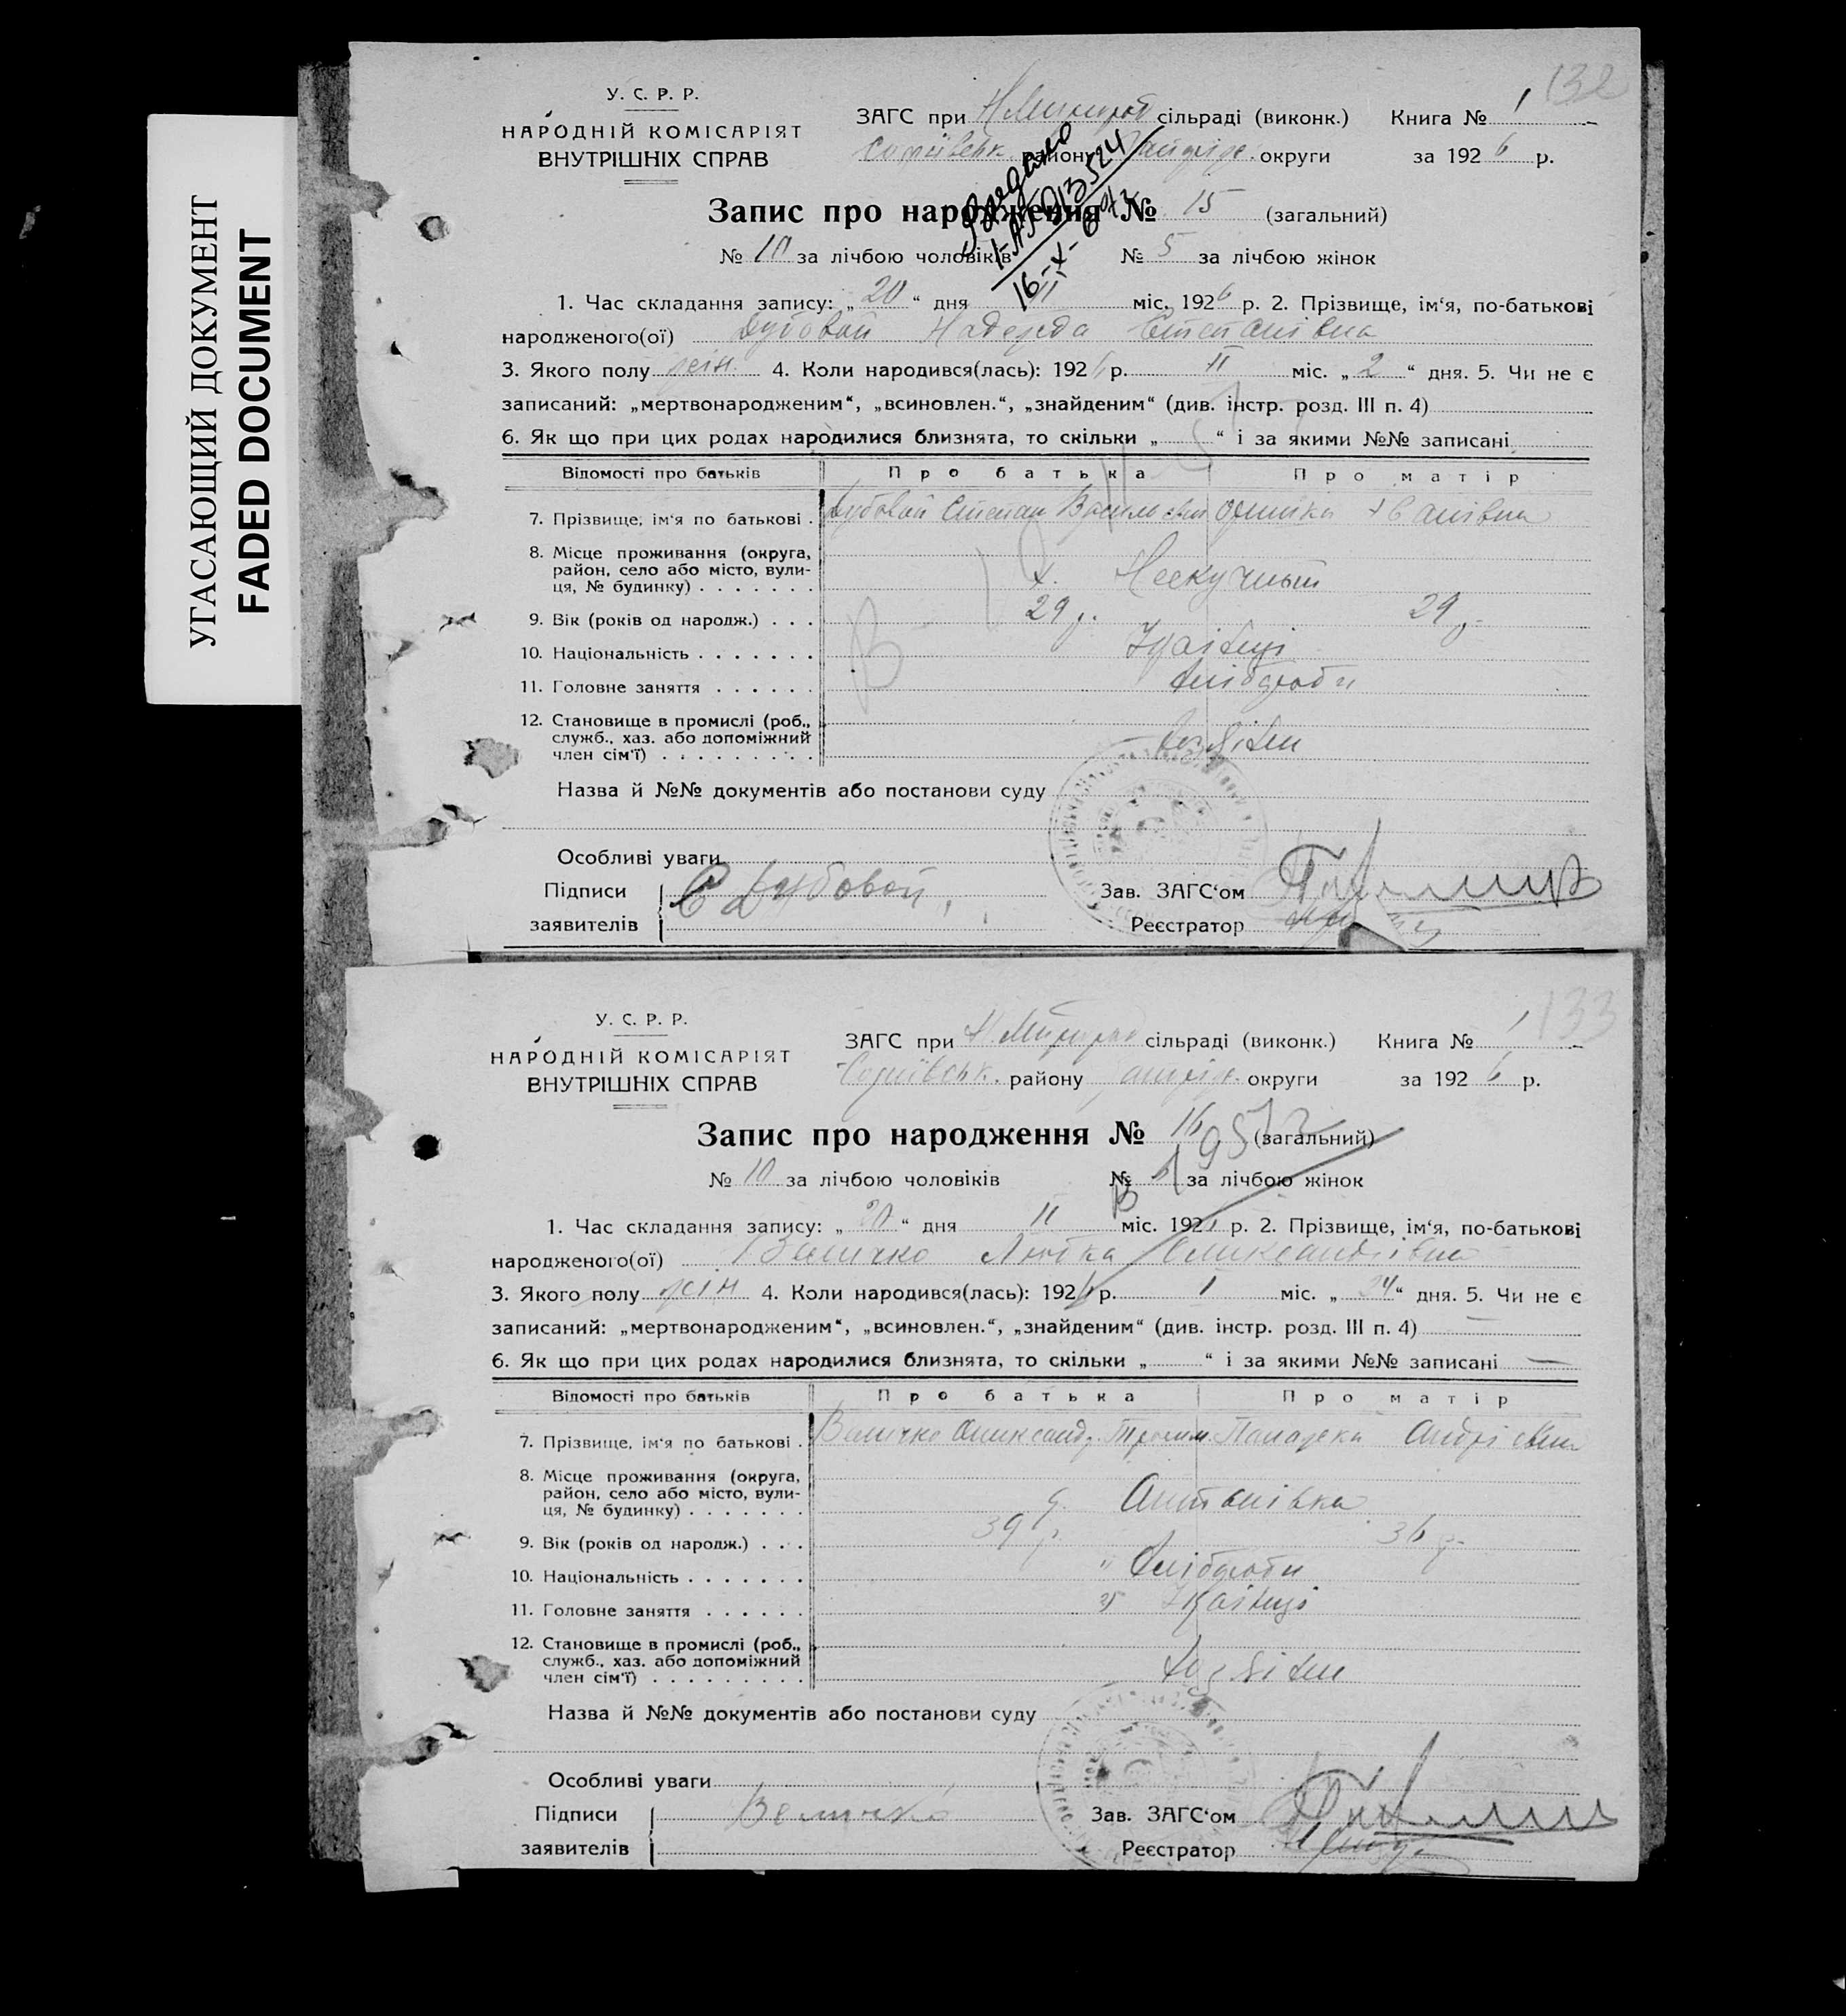 УГАСАЮЩИЙ ДОКУМЕНТ
FADED DOCUMENT
132
У. С. Р. Р.
НАРОДНІЙ КОМІСАРІЯТ
ВНУТРІШНІХ СПРАВ
ЗАГС при сільраді (виконк.) Книга № 1
району округи за 1926 р.
Видано
16-X-
Запис про народження № 15 (загальний)
№ 10 за лічбою чоловіків № 5 за лічбою жінок
1. Час складання запису: „20“ дня II міс. 1926 р. 2. Прізвище, ім‘я, по-батькові
народженого(ої) Дубовай Надежда Степанівна
3. Якого полу жін. 4. Коли народився(лась): 1926 р. II міс. „2“ дня. 5. Чи не є
записаний: „мертвонародженим“, „всиновлен.“, „знайденим“ (див. інстр. розд. III п. 4)
6. Як що при цих родах народилися близнята, то скільки „ “ і за якими №№ записані
Відомості про батьків Про батька Про матір
7. Прізвище, ім‘я по батькові . Дубовай Степан Васильевич Іванівна
8. Місце проживання (округа,
район, село або місто, вули-
ця, № будинку) . . . . . . . х. Нескучный
9. Вік (років од народж.) . . . 29 р. 29 р.
10. Національність . . . . . . . Українці
11. Головне заняття . . . . . . Хлібороби
12. Становище в промислі (роб.,
служб., хаз. або допоміжний
член сім‘ї) . . . . . . . . .
Назва й №№ документів або постанови суду
Особливі уваги
Підписи С Дубовой Зав. ЗАГС‘ом
заявителів Реєстратор
133
У. С. Р. Р.
НАРОДНІЙ КОМІСАРІЯТ
ВНУТРІШНІХ СПРАВ
ЗАГС при сільраді (виконк.) Книга № 1
району округи за 1926 р.
Запис про народження № 16 (загальний)
№ 10 за лічбою чоловіків № 6 за лічбою жінок
1. Час складання запису: „20“ дня II міс. 1926 р. 2. Прізвище, ім‘я, по-батькові
народженого(ої) Величко Любка Олександрівна
3. Якого полу жін 4. Коли народився(лась): 1926 р. I міс. „24“ дня. 5. Чи не є
записаний: „мертвонародженим“, „всиновлен.“, „знайденим“ (див. інстр. розд. III п. 4)
6. Як що при цих родах народилися близнята, то скільки „ “ і за якими №№ записані —
Відомості про батьків Про батька Про матір
7. Прізвище, ім‘я по батькові . Величко Александ. Трохим. Андрієвна
8. Місце проживання (округа,
район, село або місто, вули-
ця, № будинку) . . . . . . . Антонівка
9. Вік (років од народж.) . . . 39 р. 36 р.
10. Національність . . . . . . . Хлібороби
11. Головне заняття . . . . . . Українці
12. Становище в промислі (роб.,
служб., хаз. або допоміжний
член сім‘ї) . . . . . . . . .
Назва й №№ документів або постанови суду
Особливі уваги
Підписи Величко Зав. ЗАГС‘ом
заявителів Реєстратор